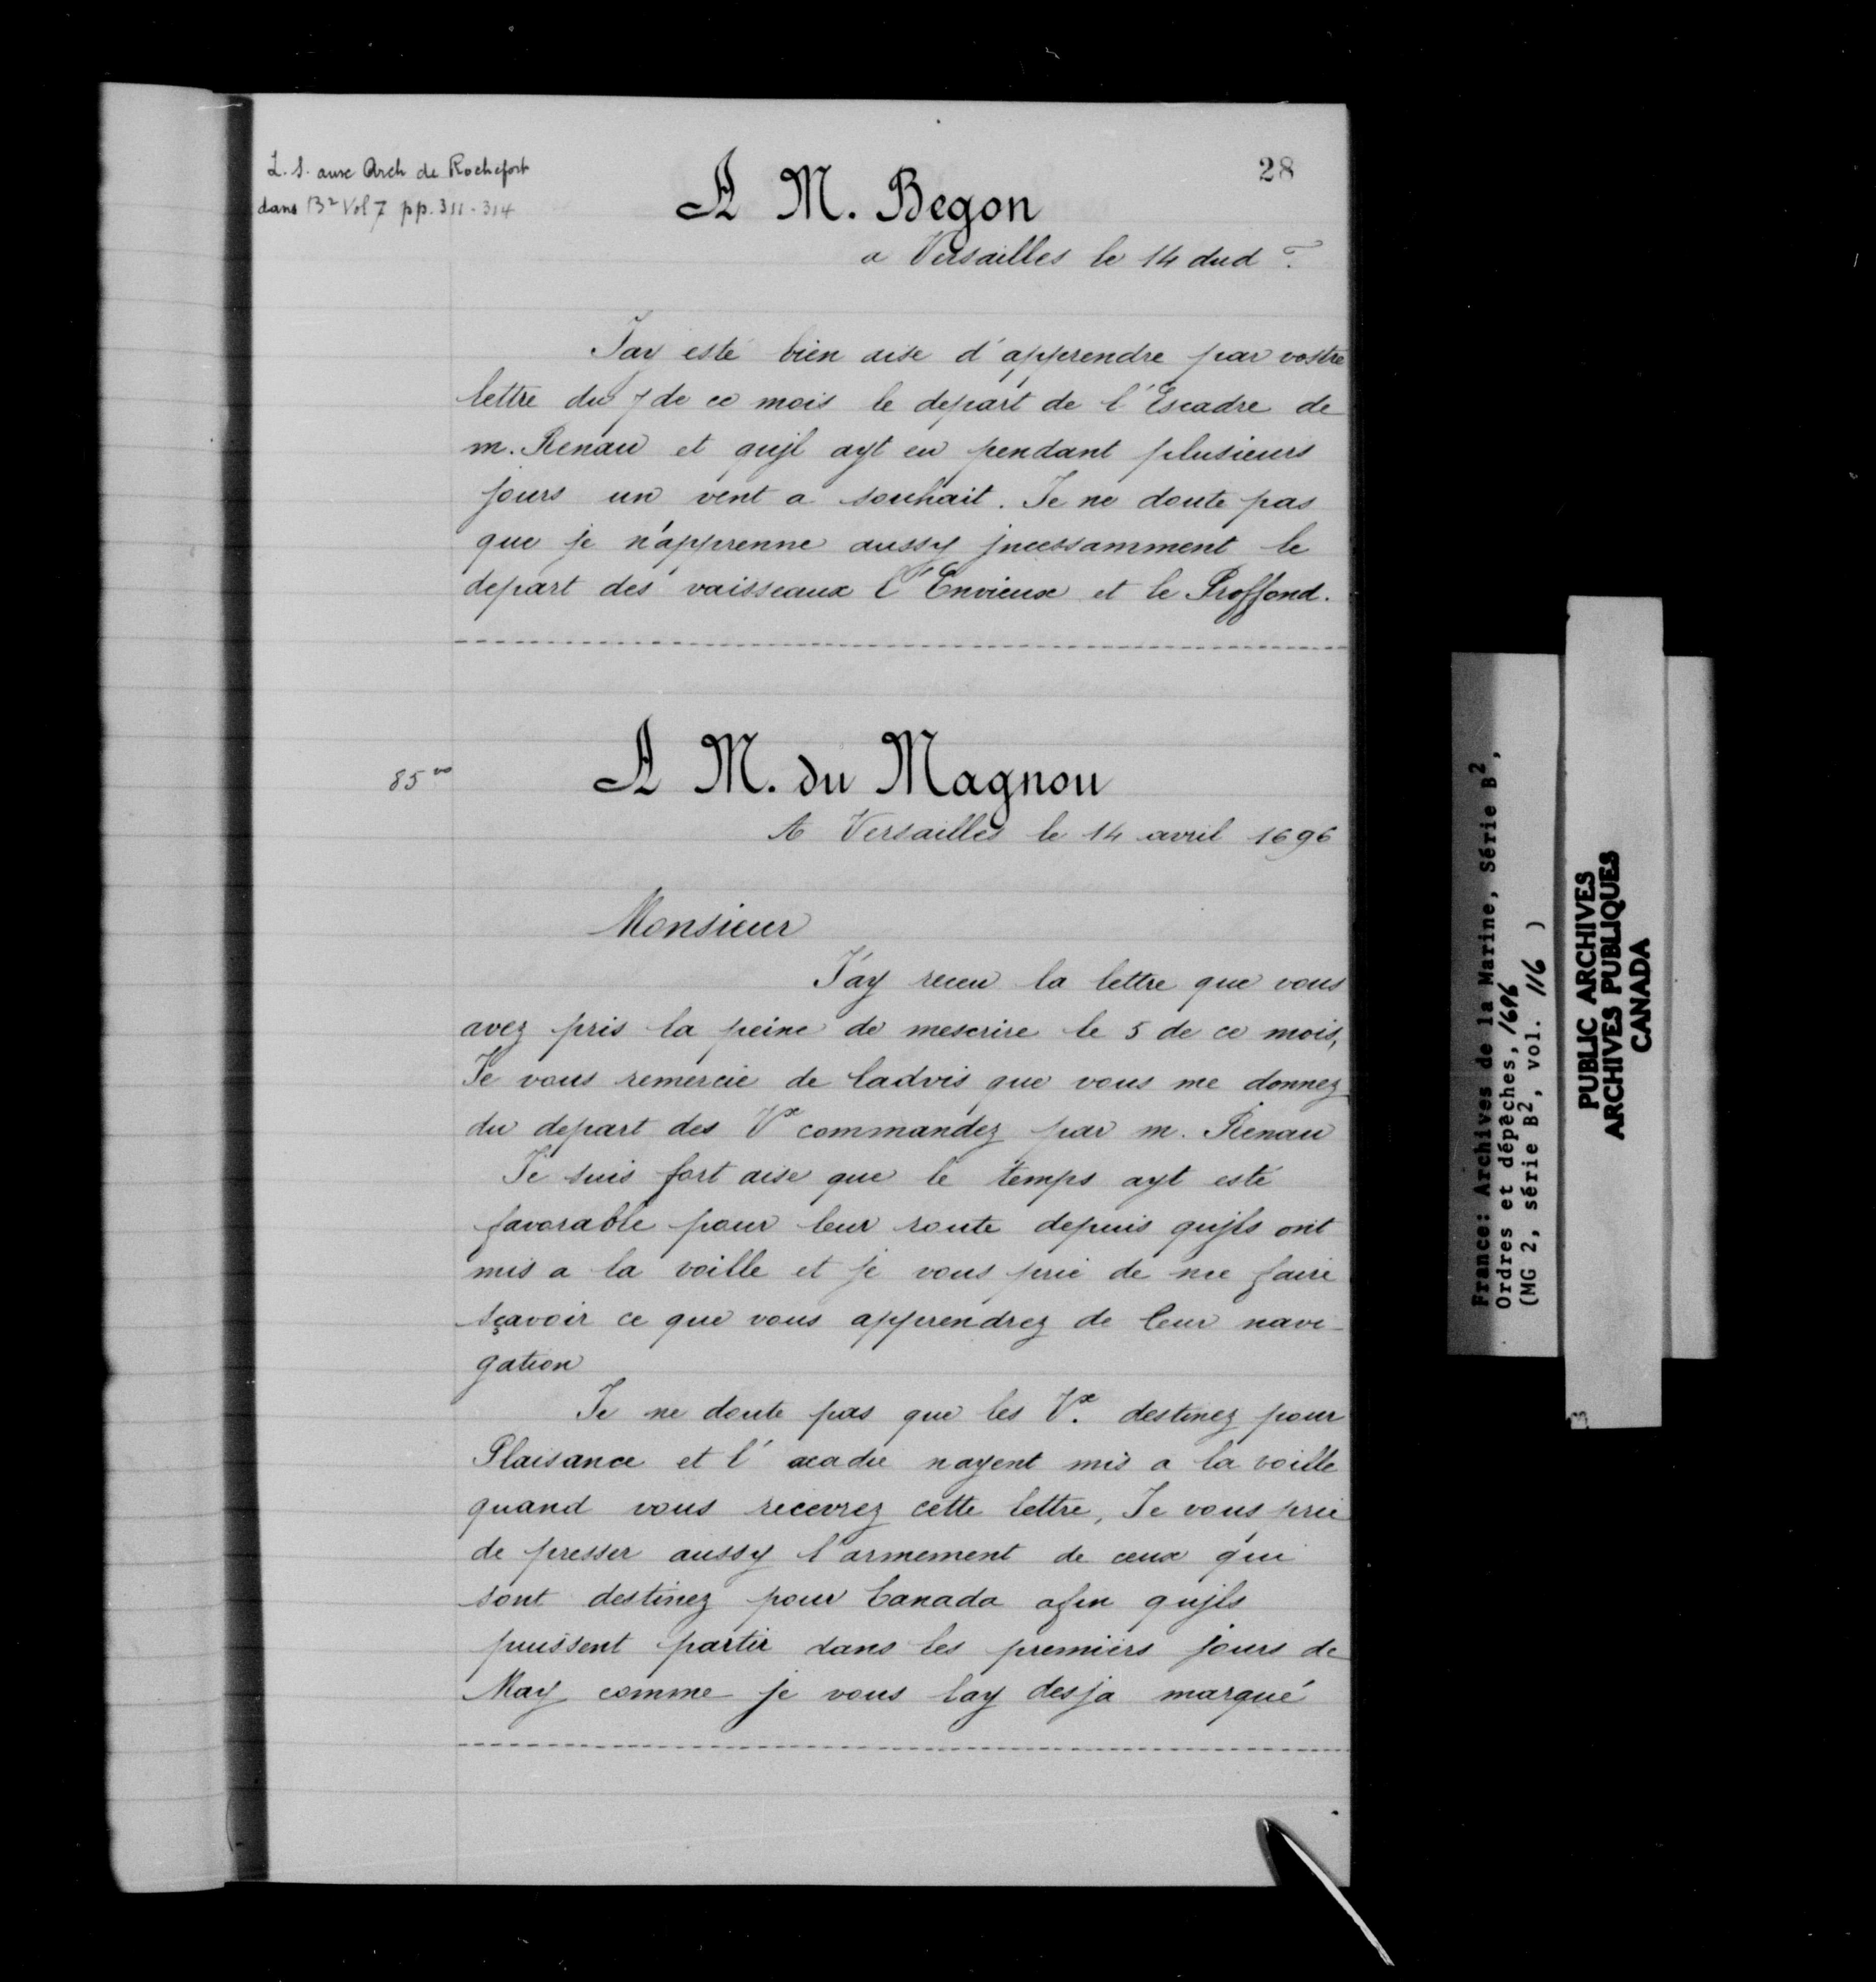 L. S. aux Arch de Rochefort
dans B² Vol 7 pp. 311-314
28
A M. Begon
a Versailles le 14 dud t.
Jay esté bien aise d'apprendre par vostre
lettre du 7 de ce mois le depart de l'Escadre de
m. Renau et qujl ayt eu pendant plusieurs
jours un vent a souhait. Je ne doute pas
que je n'apprenne aussy jncessamment le
depart des vaisseaux l'Envieux et le Proffond.
85 vo
A M. du Magnou
A Versailles le 14 avril 1696
Monsieur
J'ay receu la lettre que vous
avez pris la peine de mescrire le 5 de ce mois,
Je vous remercie de ladvis que vous me donnez
du depart des Vx commandez par m. Renau
Je suis fort aise que le temps ayt esté
favorable pour leur route depuis qujls ont
mis a la voille et je vous prie de me faire
sçavoir ce que vous apprendrez de leur navi-
gation
Je ne doute pas que les Vx. destinez pour
Plaisance et l'acadie nayent mis a la voille
quand vous recevrez cette lettre, Je vous prie
de presser aussy l'armement de ceux qui
sont destinez pour Canada afin qujls
puissent partir dans les premiers jours de
May comme je vous lay desja marqué
France: Archives de la Marine, Série B²,
Ordres et dépêches, 1696
(MG 2, série B², vol. 116 )
PUBLIC ARCHIVES
ARCHIVES PUBLIQUES
CANADA